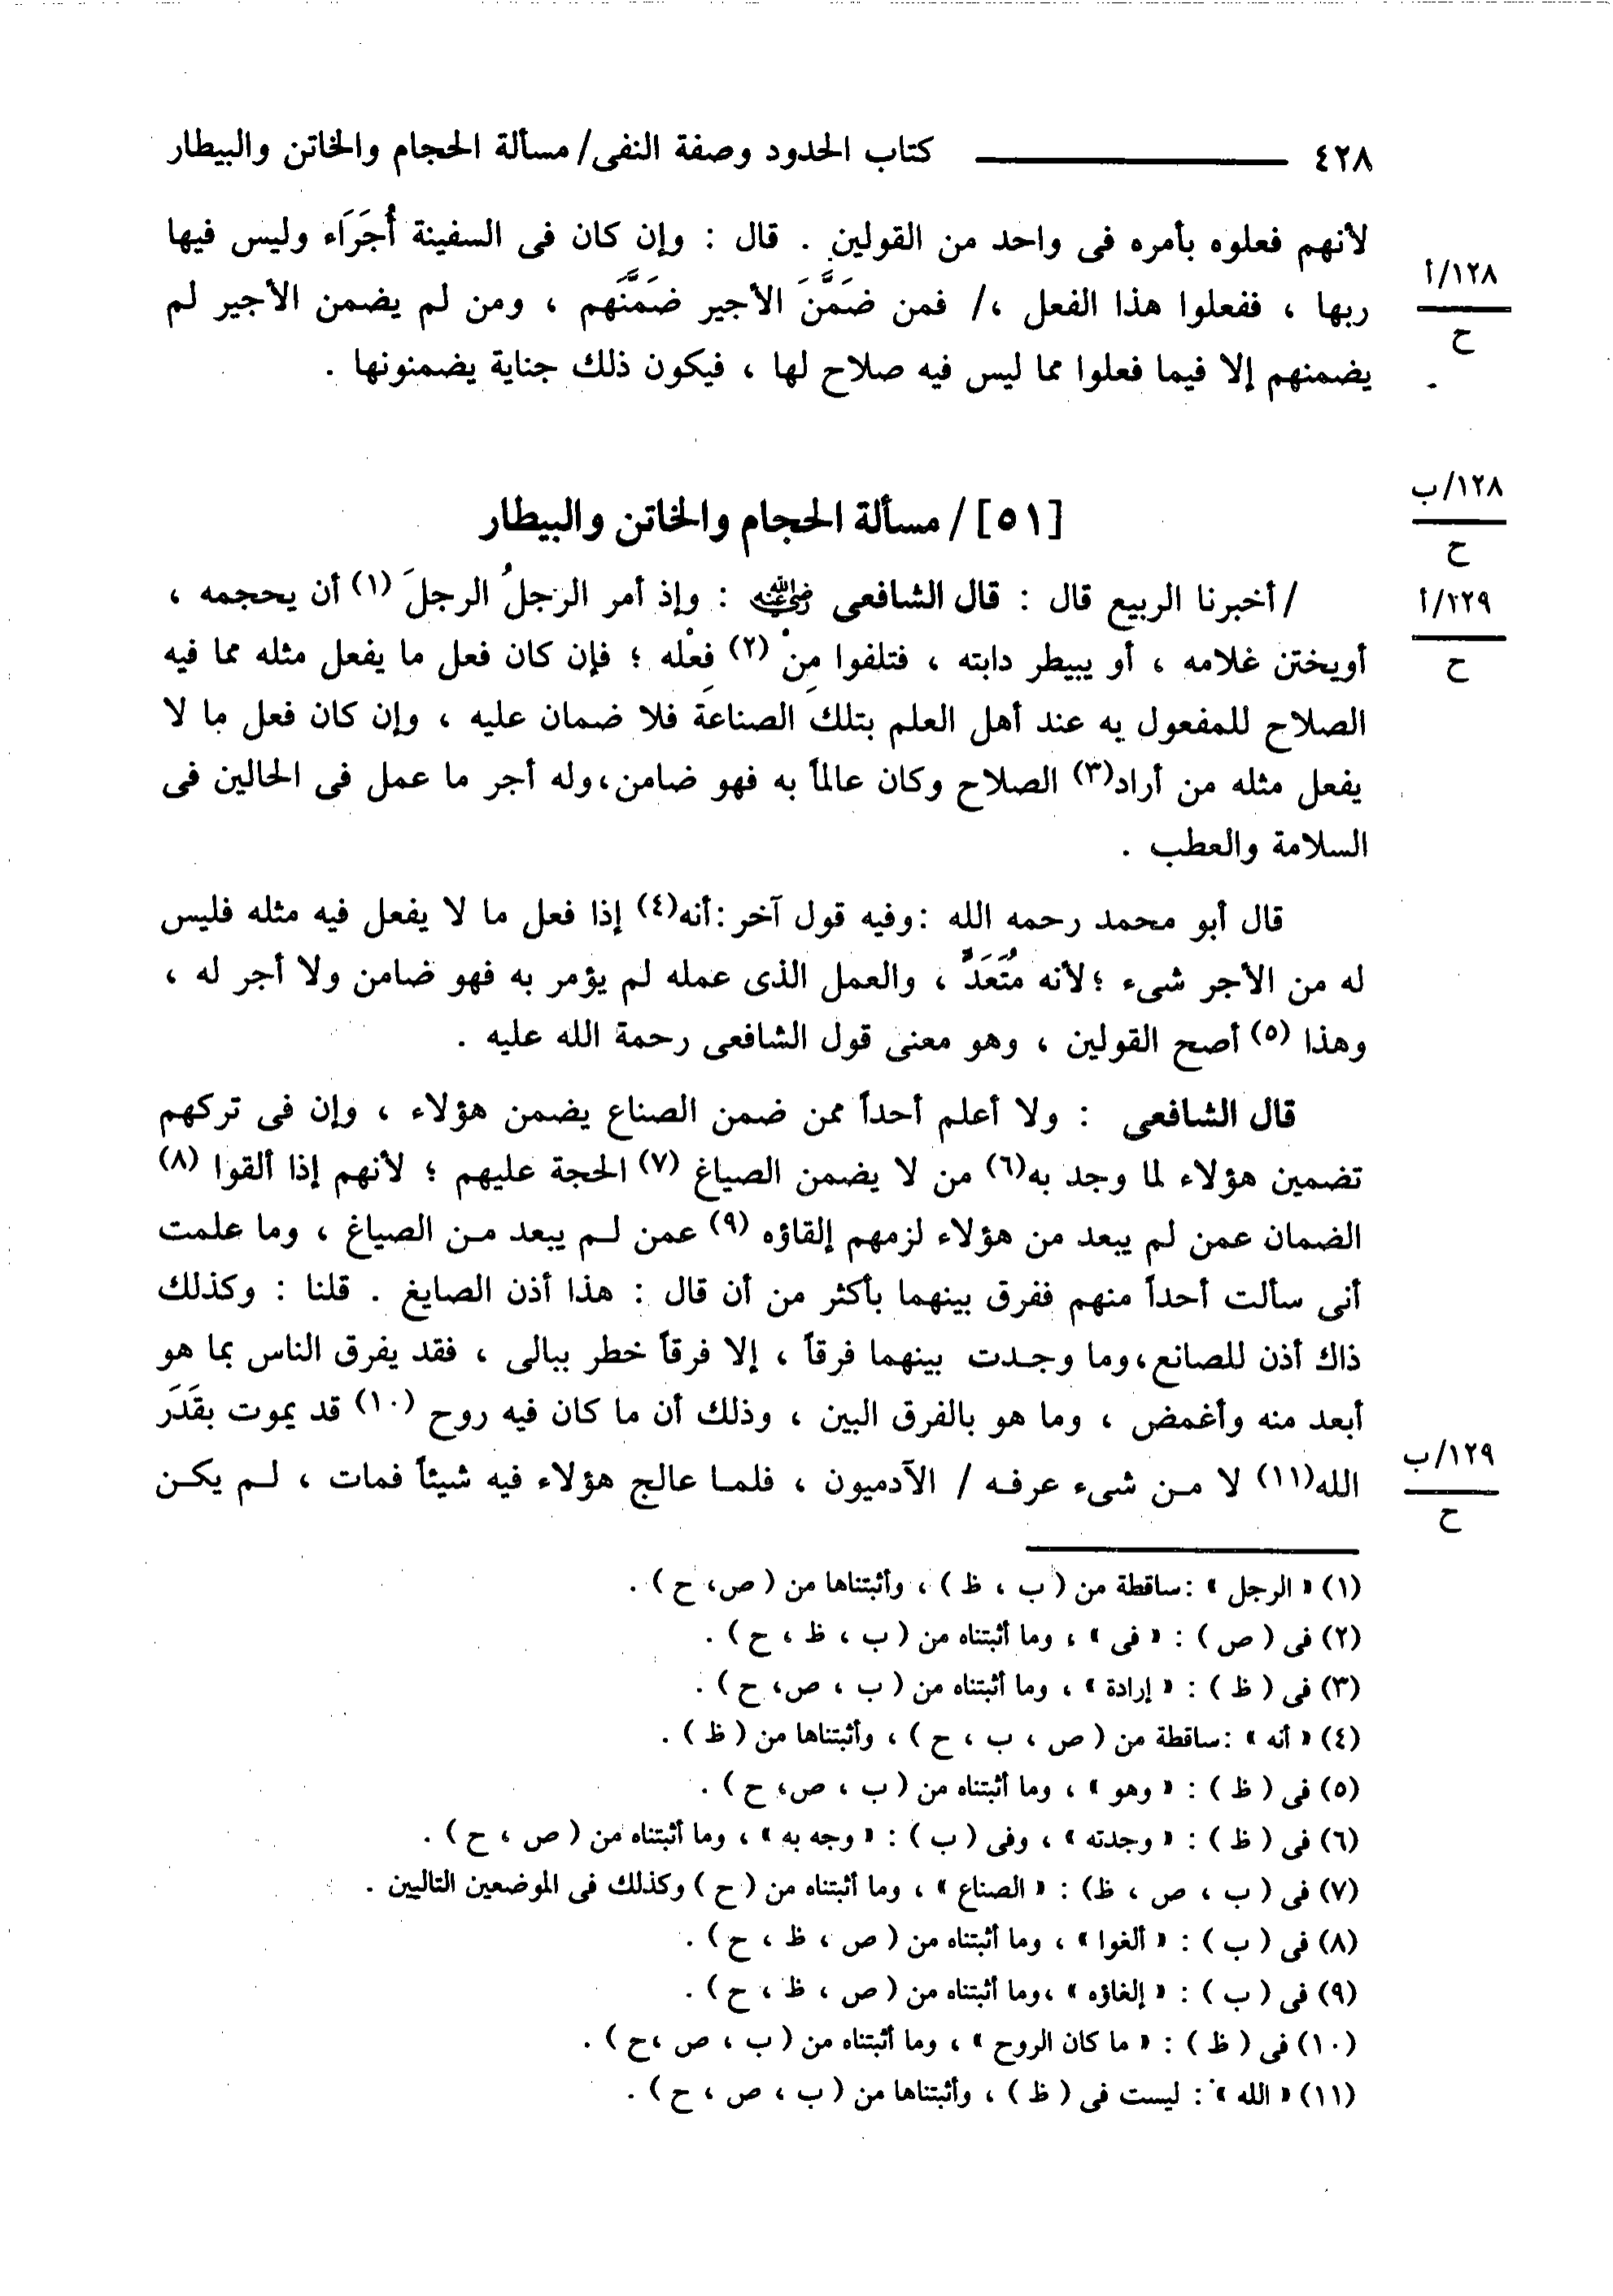 ٤٢٨ ــــــــــــ كتاب الحدود وصفة النفى/ مسألة الحجام والخاتن والبيطار
لأنهم فعلوه بأمره فى واحد من القولين . قال : وإن كان فى السفينة أُجَرَاء وليس فيها
١٢٨/أ
ح
ربها ، ففعلوا هذا الفعل ،/ فمن ضَمَّنَ الأجير ضَمَّنَهم ، ومن لم يضمن الأجير لم
يضمنهم إلا فيما فعلوا مما ليس فيه صلاح لها ، فيكون ذلك جناية يضمنونها .
١٢٨/ب
ح
[٥١] / مسألة الحجام والخاتن والبيطار
١٢٩/أ
ح
/ أخبرنا الربيع قال : قال الشافعى رضي الله عنه : وإذ أمر الرجلُ الرجلَ (١) أن يحجمه ،
أويختن غلامه ، أو يبيطر دابته ، فتلفوا مِنْ (٢) فِعْله ؛ فإن كان فعل ما يفعل مثله مما فيه
الصلاح للمفعول به عند أهل العلم بتلك الصناعة فلا ضمان عليه ، وإن كان فعل ما لا
يفعل مثله من أراد(٣) الصلاح وكان عالماً به فهو ضامن،وله أجر ما عمل فى الحالين فى
السلامة والعطب .
قال أبو محمد رحمه الله :وفيه قول آخر:أنه(٤) إذا فعل ما لا يفعل فيه مثله فليس
له من الأجر شىء ؛لأنه مُتَعَدٍّ ، والعمل الذى عمله لم يؤمر به فهو ضامن ولا أجر له ،
وهذا (٥) أصح القولين ، وهو معنى قول الشافعى رحمة الله عليه .
قال الشافعى : ولا أعلم أحداً ممن ضمن الصناع يضمن هؤلاء ، وإن فى تركهم
تضمين هؤلاء لما وجد به(٦) من لا يضمن الصياغ (٧) الحجة عليهم ؛ لأنهم إذا ألقوا (٨)
الضمان عمن لم يبعد من هؤلاء لزمهم إلقاؤه (٩) عمن لـم يبعد مـن الصياغ ، وما علمت
أنى سألت أحداً منهم ففرق بينهما بأكثر من أن قال : هذا أذن الصايغ . قلنا : وكذلك
ذاك أذن للصانع،وما وجـدت بينهما فرقاً ، إلا فرقاً خطر ببالى ، فقد يفرق الناس بما هو
أبعد منه وأغمض ، وما هو بالفرق البين ، وذلك أن ما كان فيه روح (١٠) قد يموت بقَدَر
١٢٩/ب
ح
الله(١١) لا مـن شىء عرفـه / الآدميون ، فلمـا عالج هؤلاء فيه شيئاً فمات ، لـم يكـن
(١) « الرجل » :ساقطة من ( ب ، ظ ) ، وأثبتناها من ( ص، ح ) .
(٢) فى ( ص ) : « فى » ، وما أثبتناه من ( ب ، ظ ، ح ) .
(٣) فى ( ظ ) : « إرادة » ، وما أثبتناه من ( ب ، ص، ح ) .
(٤) « أنه » :ساقطة من ( ص ، ب ، ح ) ، وأثبتناها من ( ظ ) .
(٥) فى ( ظ ) : « وهو » ، وما أثبتناه من ( ب ، ص، ح ) .
(٦) فى ( ظ ) : « وجدته » ، وفى ( ب ) : « وجه به » ، وما أثبتناه من ( ص ، ح ) .
(٧) فى ( ب ، ص ، ظ) : « الصناع » ، وما أثبتناه من ( ح ) وكذلك فى الموضعين التاليين .
(٨) فى ( ب ) : « ألغوا » ، وما أثبتناه من ( ص ، ظ ، ح ) .
(٩) فى ( ب ) : « إلغاؤه » ،وما أثبتناه من ( ص ، ظ ، ح ) .
(١٠) فى ( ظ ) : « ما كان الروح » ، وما أثبتناه من ( ب ، ص ،ح ) .
(١١) « الله » : ليست فى ( ظ ) ، وأثبتناها من ( ب ، ص ، ح ) .